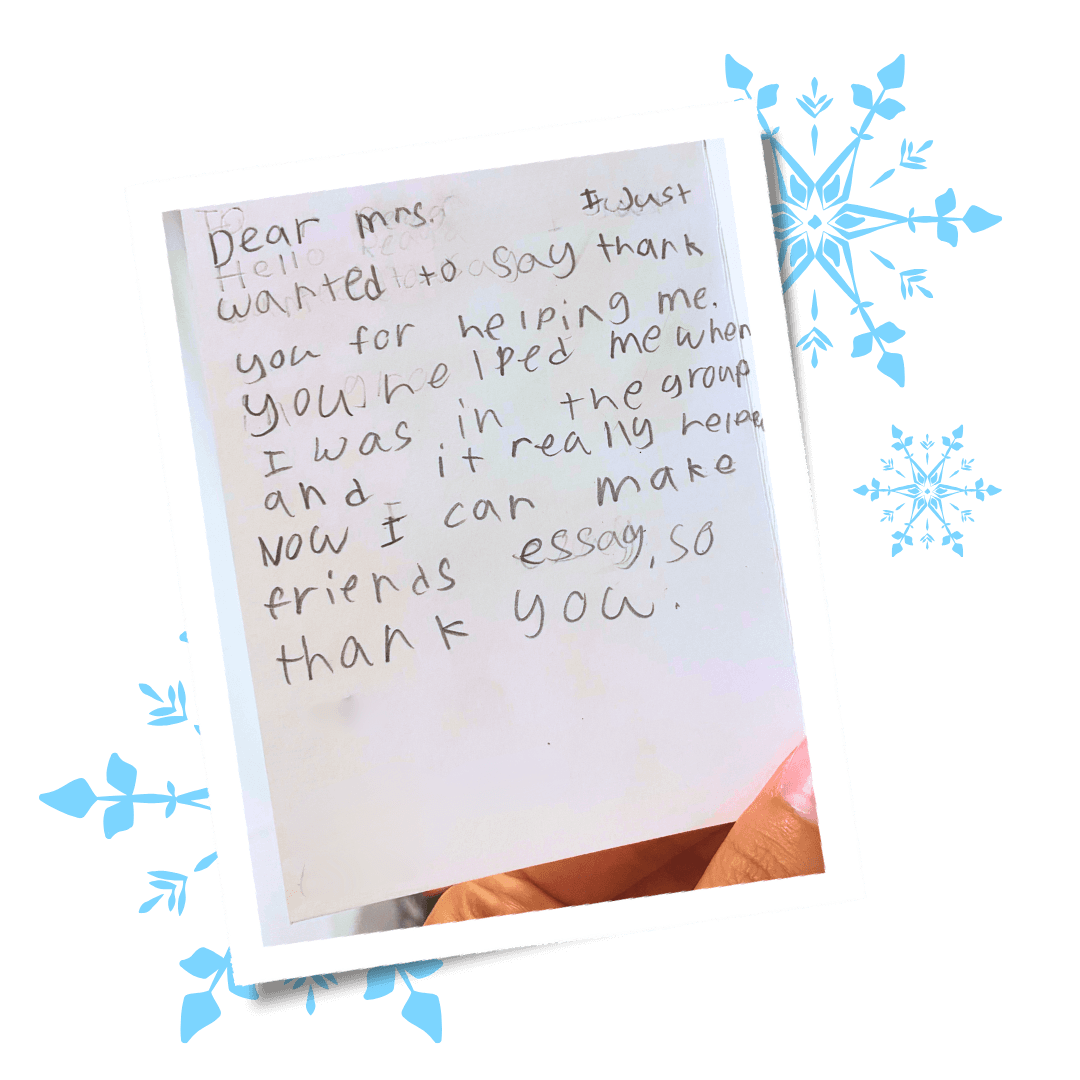 Dear mrs. I Just
Hello
wanted to say thank
you for helping me.
you helped me when
I was in the group
and it really helped
NOW I can make
friends essay, so
thank you.